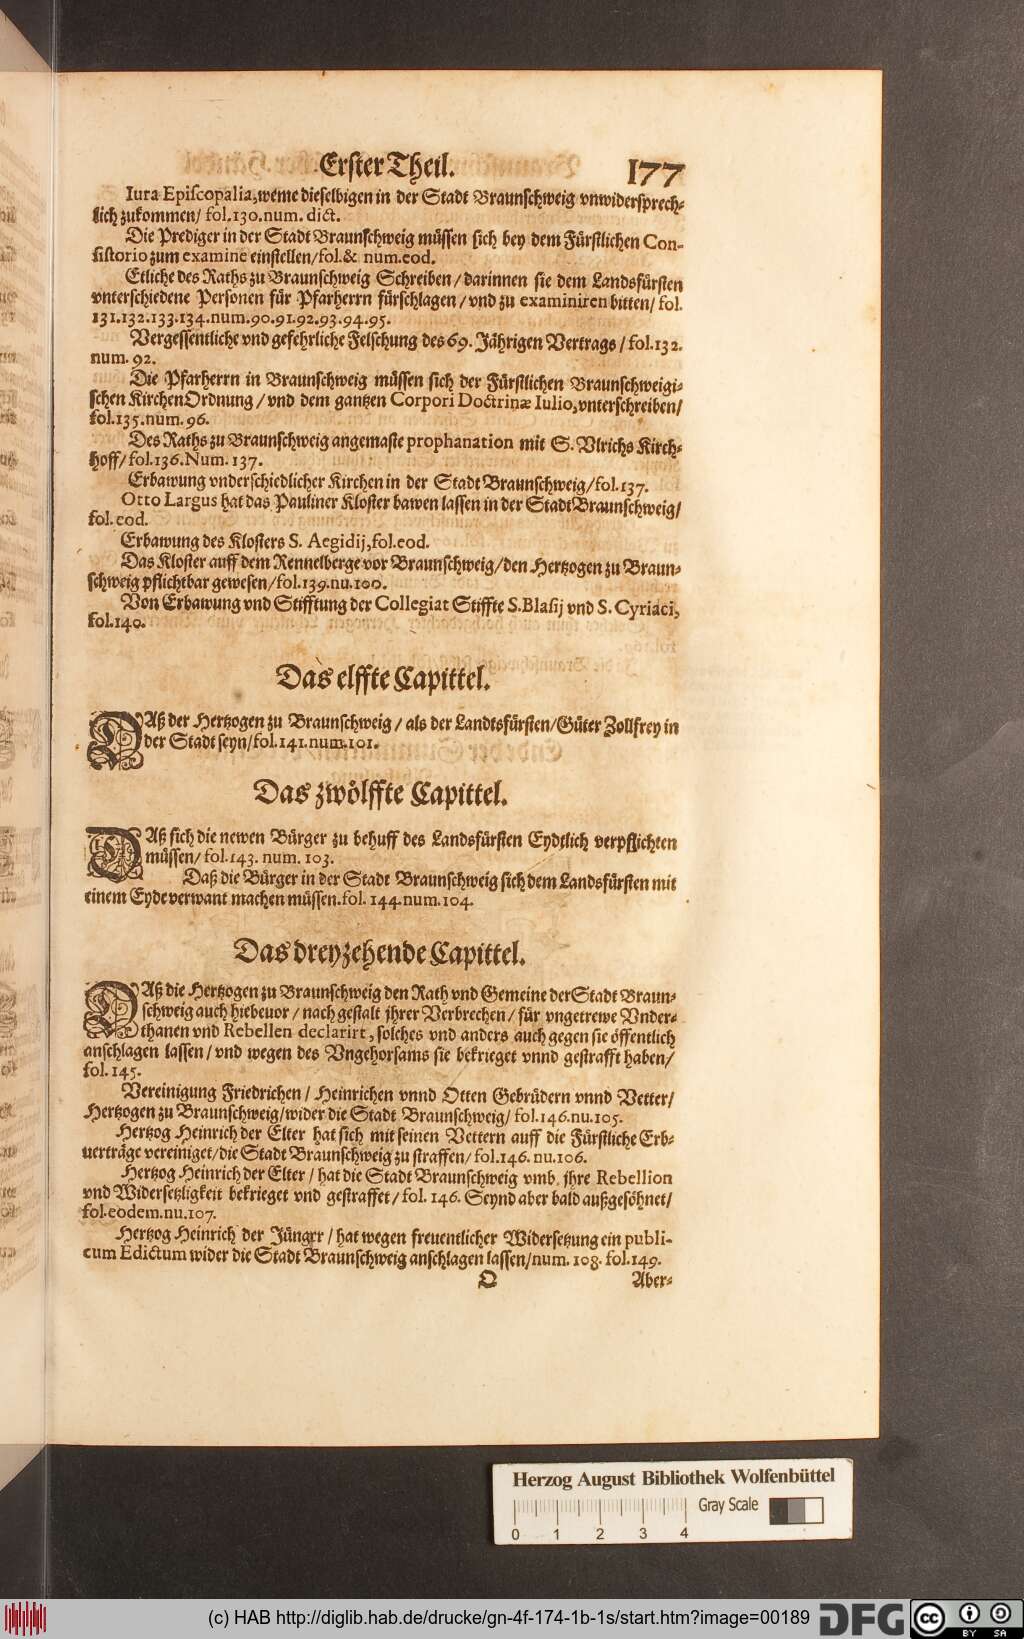 Erster Theil. 177
Iura Episcopalia, weme dieselbigen in der Stadt Braunschweig vnwidersprech-
lich zukommen/ fol.130.num. dict.
Die Prediger in der Stadt Braunschweig müssen sich bey dem Fürstlichen Con-
sistorio zum examine einstellen/fol.& num.eod.
Etliche des Raths zu Braunschweig Schreiben / darinnen sie dem Landsfürsten
vnterschiedene Personen für Pfarherrn fürschlagen / vnd zu examiniren bitten/ fol.
131.132.133.134.num.90.91.92.93.94.95.
Vergessentliche vnd gefehrliche Felschung des 69. Jährigen Vertrags / fol.132.
num. 92.
Die Pfarherrn in Braunschweig müssen sich der Fürstlichen Braunschweigi-
schen KirchenOrdnung / vnd dem gantzen Corpori Doctrinæ Iulio, vnterschreiben/
fol.135.num. 96.
Des Raths zu Braunschweig angemaste prophanation mit S. Vlrichs Kirch-
hoff/ fol.136.Num. 137.
Erbawung vnderschiedlicher Kirchen in der Stadt Braunschweig/fol.137.
Otto Largus hat das Pauliner Kloster bawen lassen in der Stadt Braunschweig/
fol.eod.
Erbawung des Klosters S. Aegidij, fol.eod.
Das Kloster auff dem Rennelberge vor Braunschweig/den Hertzogen zu Braun-
schweig pflichtbar gewesen/fol.139.nu.100.
Von Erbawung vnd Stifftung der Collegiat Stiffte S.Blasij vnd S. Cyriaci,
fol.140.
Das elffte Capittel.
DAß der Hertzogen zu Braunschweig / als der Landtsfürsten/Güter Zollfrey in
der Stadt seyn/fol.141.num.101.
Das zwölffte Capittel.
DAß sich die newen Bürger zu behuff des Landsfürsten Eydtlich verpflichten
müssen/ fol.143. num. 103.
Daß die Bürger in der Stadt Braunschweig sich dem Landsfürsten mit
einem Eyde verwant machen müssen.fol. 144.num.104.
Das dreyzehende Capittel.
DAß die Hertzogen zu Braunschweig den Rath vnd Gemeine der Stadt Braun-
schweig auch hiebeuor / nach gestalt jhrer Verbrechen / für vngetrewe Vnder-
thanen vnd Rebellen declarirt, solches vnd anders auch gegen sie öffentlich
anschlagen lassen / vnd wegen des Vngehorsams sie bekrieget vnnd gestrafft haben/
fol. 145.
Vereinigung Friedrichen / Heinrichen vnnd Otten Gebrüdern vnnd Vetter/
Hertzogen zu Braunschweig/wider die Stadt Braunschweig/ fol.146.nu.105.
Hertzog Heinrich der Elter hat sich mit seinen Vettern auff die Fürstliche Erb-
uerträge vereiniget/die Stadt Braunschweig zu straffen/ fol.146. nu.106.
Hertzog Heinrich der Elter / hat die Stadt Braunschweig vmb jhre Rebellion
vnd Widersetzligkeit bekrieget vnd gestraffet / fol. 146. Seynd aber bald außgesöhnet/
fol.eodem.nu.107.
Hertzog Heinrich der Jünger / hat wegen freuentlicher Widersetzung ein publi-
cum Edictum wider die Stadt Braunschweig anschlagen lassen/num. 108. fol.149.
O Aber-
Herzog August Bibliothek Wolfenbüttel
Gray Scale
0 1 2 3 4
(c) HAB http://diglib.hab.de/drucke/gn-4f-174-1b-1s/start.htm?image=00189
DFG
cc BY SA